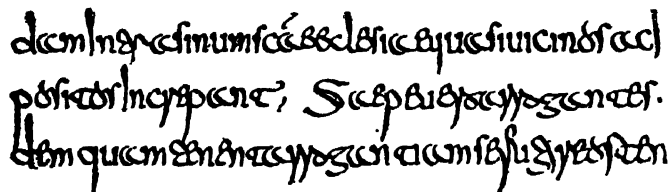 dam Intra sinum scae ecclesiae quasi uicinos ad
positos Increpant, Saepe uero arrogantes.
dem quam tenent arrogantiam se fugere osten